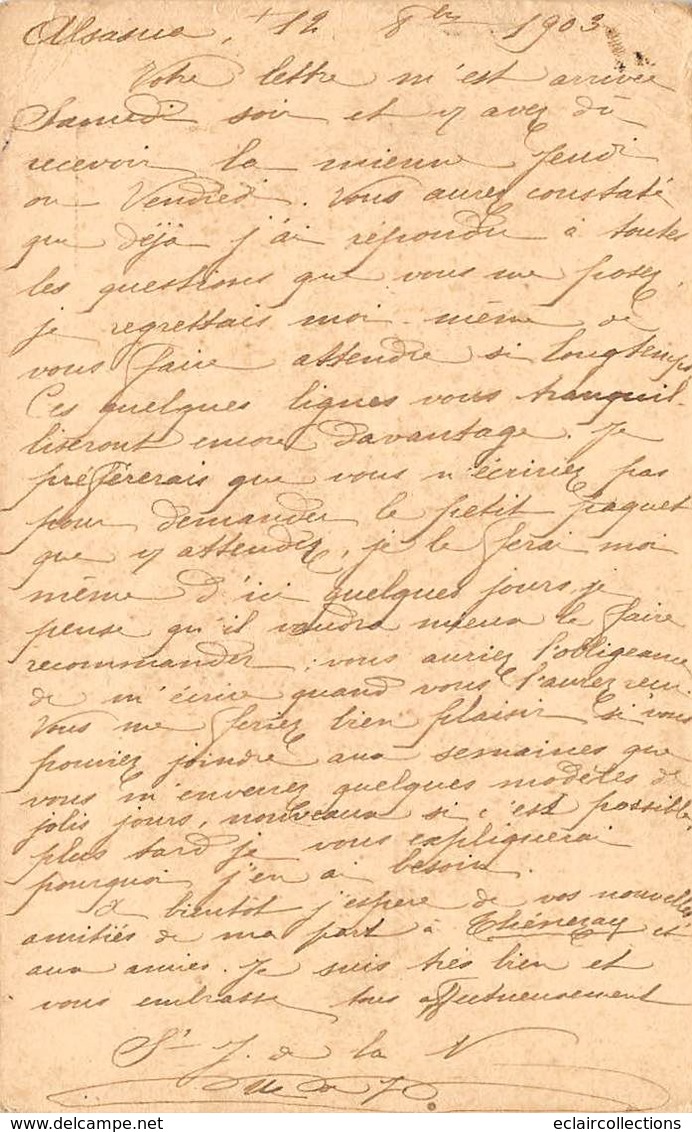 Alsasua, + 12 8bre 1903
Votre lettre m'est arrivée
Samedi soir et v avez dû
recevoir la mienne Jeudi
ou Vendredi. Vous aurez constaté
que déjà j'ai répondu à toutes
les questions que vous me posez,
je regrettais moi-même de
vous faire attendre si longtemps
Ces quelques lignes vous tranquil-
liseront encore davantage. Je
préfèrerais que vous n'écriviez pas
pour demander le petit paquet
que v attendez, je le ferai moi
même d'ici quelques jours, je
pense qu'il vaudra mieux le faire
recommander ; vous auriez l'obligeance
de m'écrire quand vous l'aurez reçu
Vous me feriez bien plaisir si vous
pouviez joindre aux semaines que
vous m'enverrez quelques modèles de
jolis jours, nouveaux si c'est possible,
plus tard je vous expliquerai
pourquoi j'en ai besoin.
A bientôt j'espère de vos nouvelles
amitiés de ma part à et
aux amies. Je suis très bien et
vous embrasse tous affectueusement
Sr J. de la N
eclaircollections